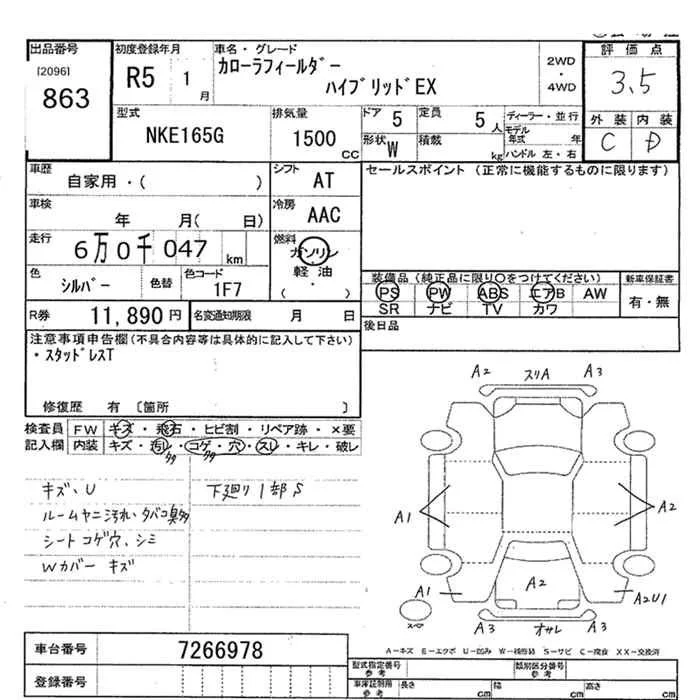 出品番号
[2096]
863
初度登録年月
R5 1 月
車名・グレード
カローラフィールダー
ハイブリッドEX
2WD
・
4WD
評価点
3.5
外装 内装
C D
型式
NKE165G
排気量
1500 cc
ドア 5
定員 5 人
形状 W
積載 kg
ディーラー・並行
モデル年式 年
ハンドル 左・右
車歴
自家用・( )
シフト AT
車検
年 月( 日)
冷房 AAC
走行
6万0千047 km
燃料
ガソリン
軽油
( ・ )
色 シルバー 色替
色コード 1F7
R券 11,890 円
名変通知期限 月 日
セールスポイント(正常に機能するものに限ります)
装備品(純正品に限り○をつけてください)
PS PW ABS エアB AW
SR ナビ TV カワ
新車保証書
有・無
後日品
注意事項申告欄(不具合内容等は具体的に記入して下さい)
・スタッドレスT
修復歴 有 〔箇所 〕
検査員 FW キズ・飛石・ヒビ割・リペア跡・×要
記入欄 内装 キズ・汚レ・コゲ・穴・スレ・キレ・破レ
多 多
キズ、U
ルームヤニ汚れ、タバコ臭多
シートコゲ穴、シミ
Wカバー キズ
下廻り1部S
A2 スリA A3
A1 A2
A2
A1 A2U1
スペ
A3 オサレ A3
A-キズ E-エクボ U-凹み W-補修跡 S-サビ C-腐食 XX-交換済
車台番号 7266978
登録番号
型式指定番号 参考
類別区分番号 参考
車庫証明用 参考
長さ cm 幅 cm 高さ cm